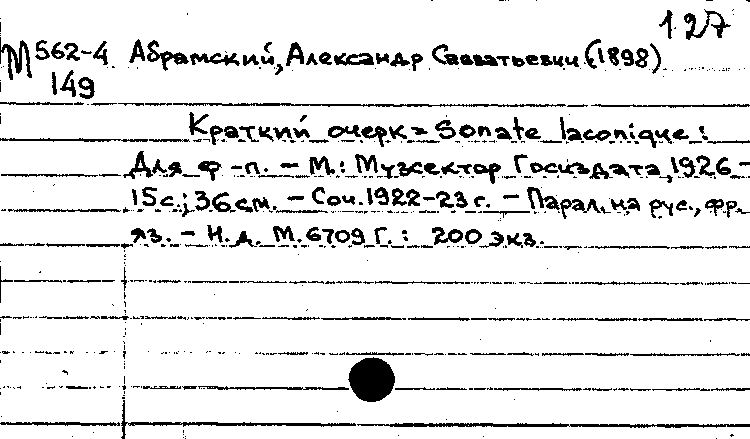 127
М 562-4 Абрамский, Александр Савватьевич (1898)
149
Краткий очерк = Sonate laconique :
Для ф-п. - М.: Музсектор Госиздата, 1926 -
15с.; 36см. - Соч. 1922-23 г. - Парал. на рус., фр.
яз. - Н.д. М. 6709 Г. : 200 экз.